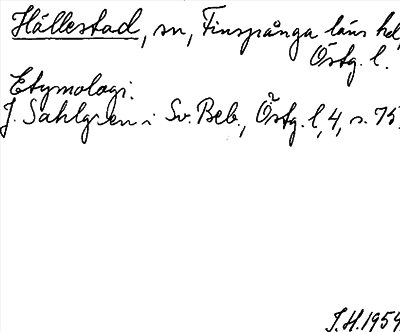 Hällestad, sn, Finspånga läns hd,
Östg. l.
Etymologi.
J. Sahlgren i Sv. Beb., Östg. l, 4, s. 75.
J.H. 1959